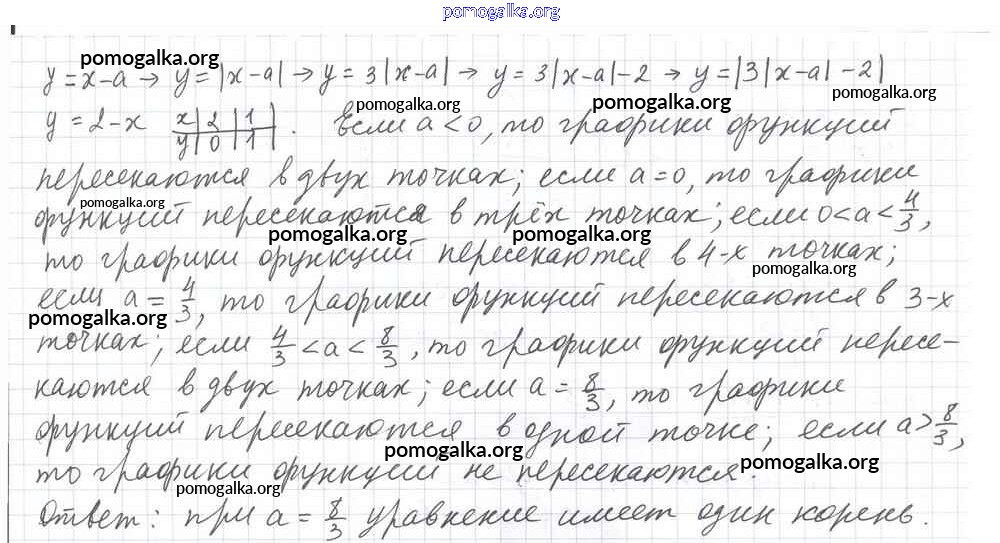 pomogalka.org
pomogalka.org
y = x-a → y = |x-a| → y = 3|x-a| → y = 3|x-a| - 2 → y = |3|x-a| - 2|
pomogalka.org pomogalka.org pomogalka.org
y = 2-x x|2|1| y|0|1| . Если a < 0, то графики функций
пересекаются в двух точках; если a = 0, то графики
pomogalka.org
функций пересекаются в трёх точках; если 0 < a < 4/3,
pomogalka.org pomogalka.org
то графики функций пересекаются в 4-х точках;
pomogalka.org
если a = 4/3, то графики функций пересекаются в 3-х
pomogalka.org
точках; если 4/3 < a < 8/3, то графики функций пересе-
каются в двух точках; если a = 8/3, то графики
функций пересекаются в одной точке; если a > 8/3,
pomogalka.org pomogalka.org
то графики функций не пересекаются.
pomogalka.org
Ответ: при a = 8/3 уравнение имеет один корень.